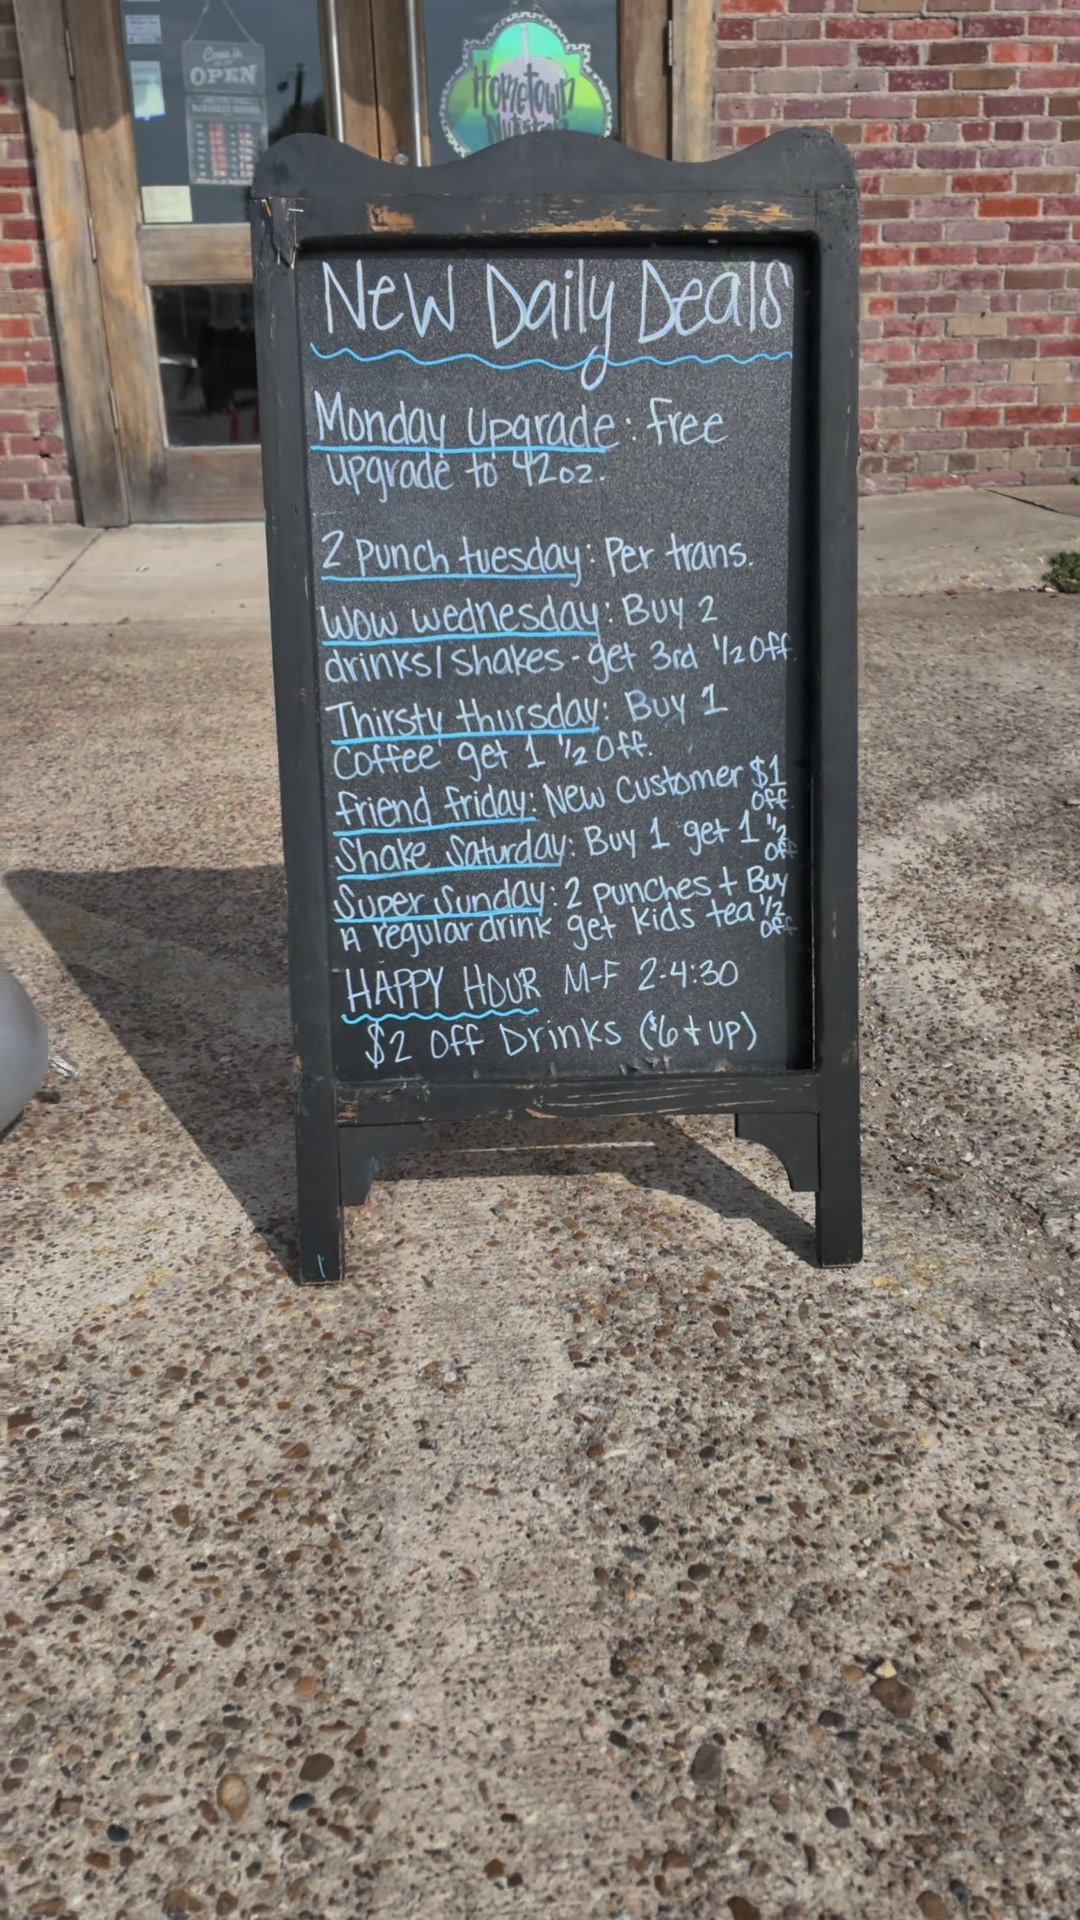 Come in
OPEN
Hometown
New Daily Deals
Monday Upgrade: Free
upgrade to 42oz.
2 Punch Tuesday: Per trans.
Wow Wednesday: Buy 2
drinks/shakes-get 3rd 1/2 Off.
Thirsty Thursday: Buy 1
Coffee get 1 1/2 Off.
Friend Friday: New Customer $1
Off.
Shake Saturday: Buy 1 get 1 1/2
Off
Super Sunday: 2 punches + Buy
A regular drink get kids tea 1/2
Off
HAPPY HOUR M-F 2-4:30
$2 Off Drinks ($6+up)